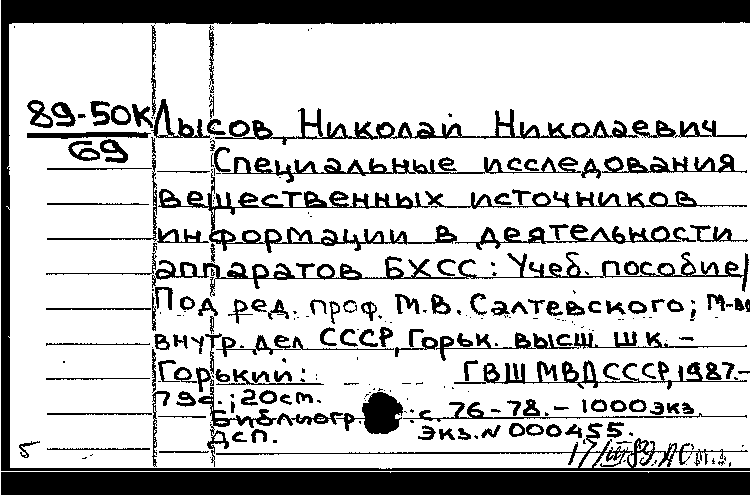 89-50К Лысов, Николай Николаевич
69
Специальные исследования
вещественных источников
информации в деятельности
аппаратов БХСС: Учеб. пособие/
Под ред. проф. М.В. Салтевского; М-во
внутр. дел СССР, Горьк. высш. шк. –
Горький: ГВШ МВД СССР, 1987.–
79с.; 20см.
Библиогр.: с. 76-78. – 1000 экз.
ДСП. Экз. N 000455.
Б